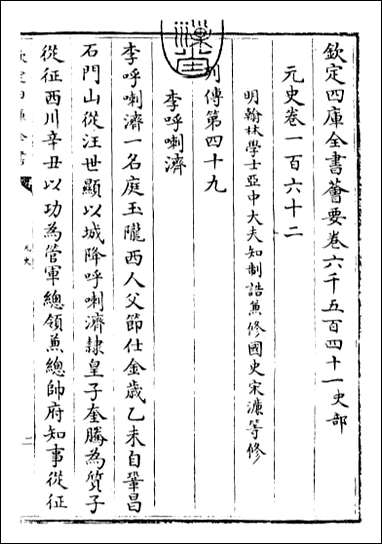 欽定四庫全書薈要卷六千五百四十一史部
元史卷一百六十二
明翰林學士亞中大夫知制誥兼修國史宋濂等修
列傳第四十九
李呼喇濟
李呼喇濟一名庭玉隴西人父節仕金歲乙未自鞏昌
石門山從汪世顯以城降呼喇濟隸皇子奎騰為質子
從征西川辛丑以功為管軍總領兼總帥府知事從征
元史